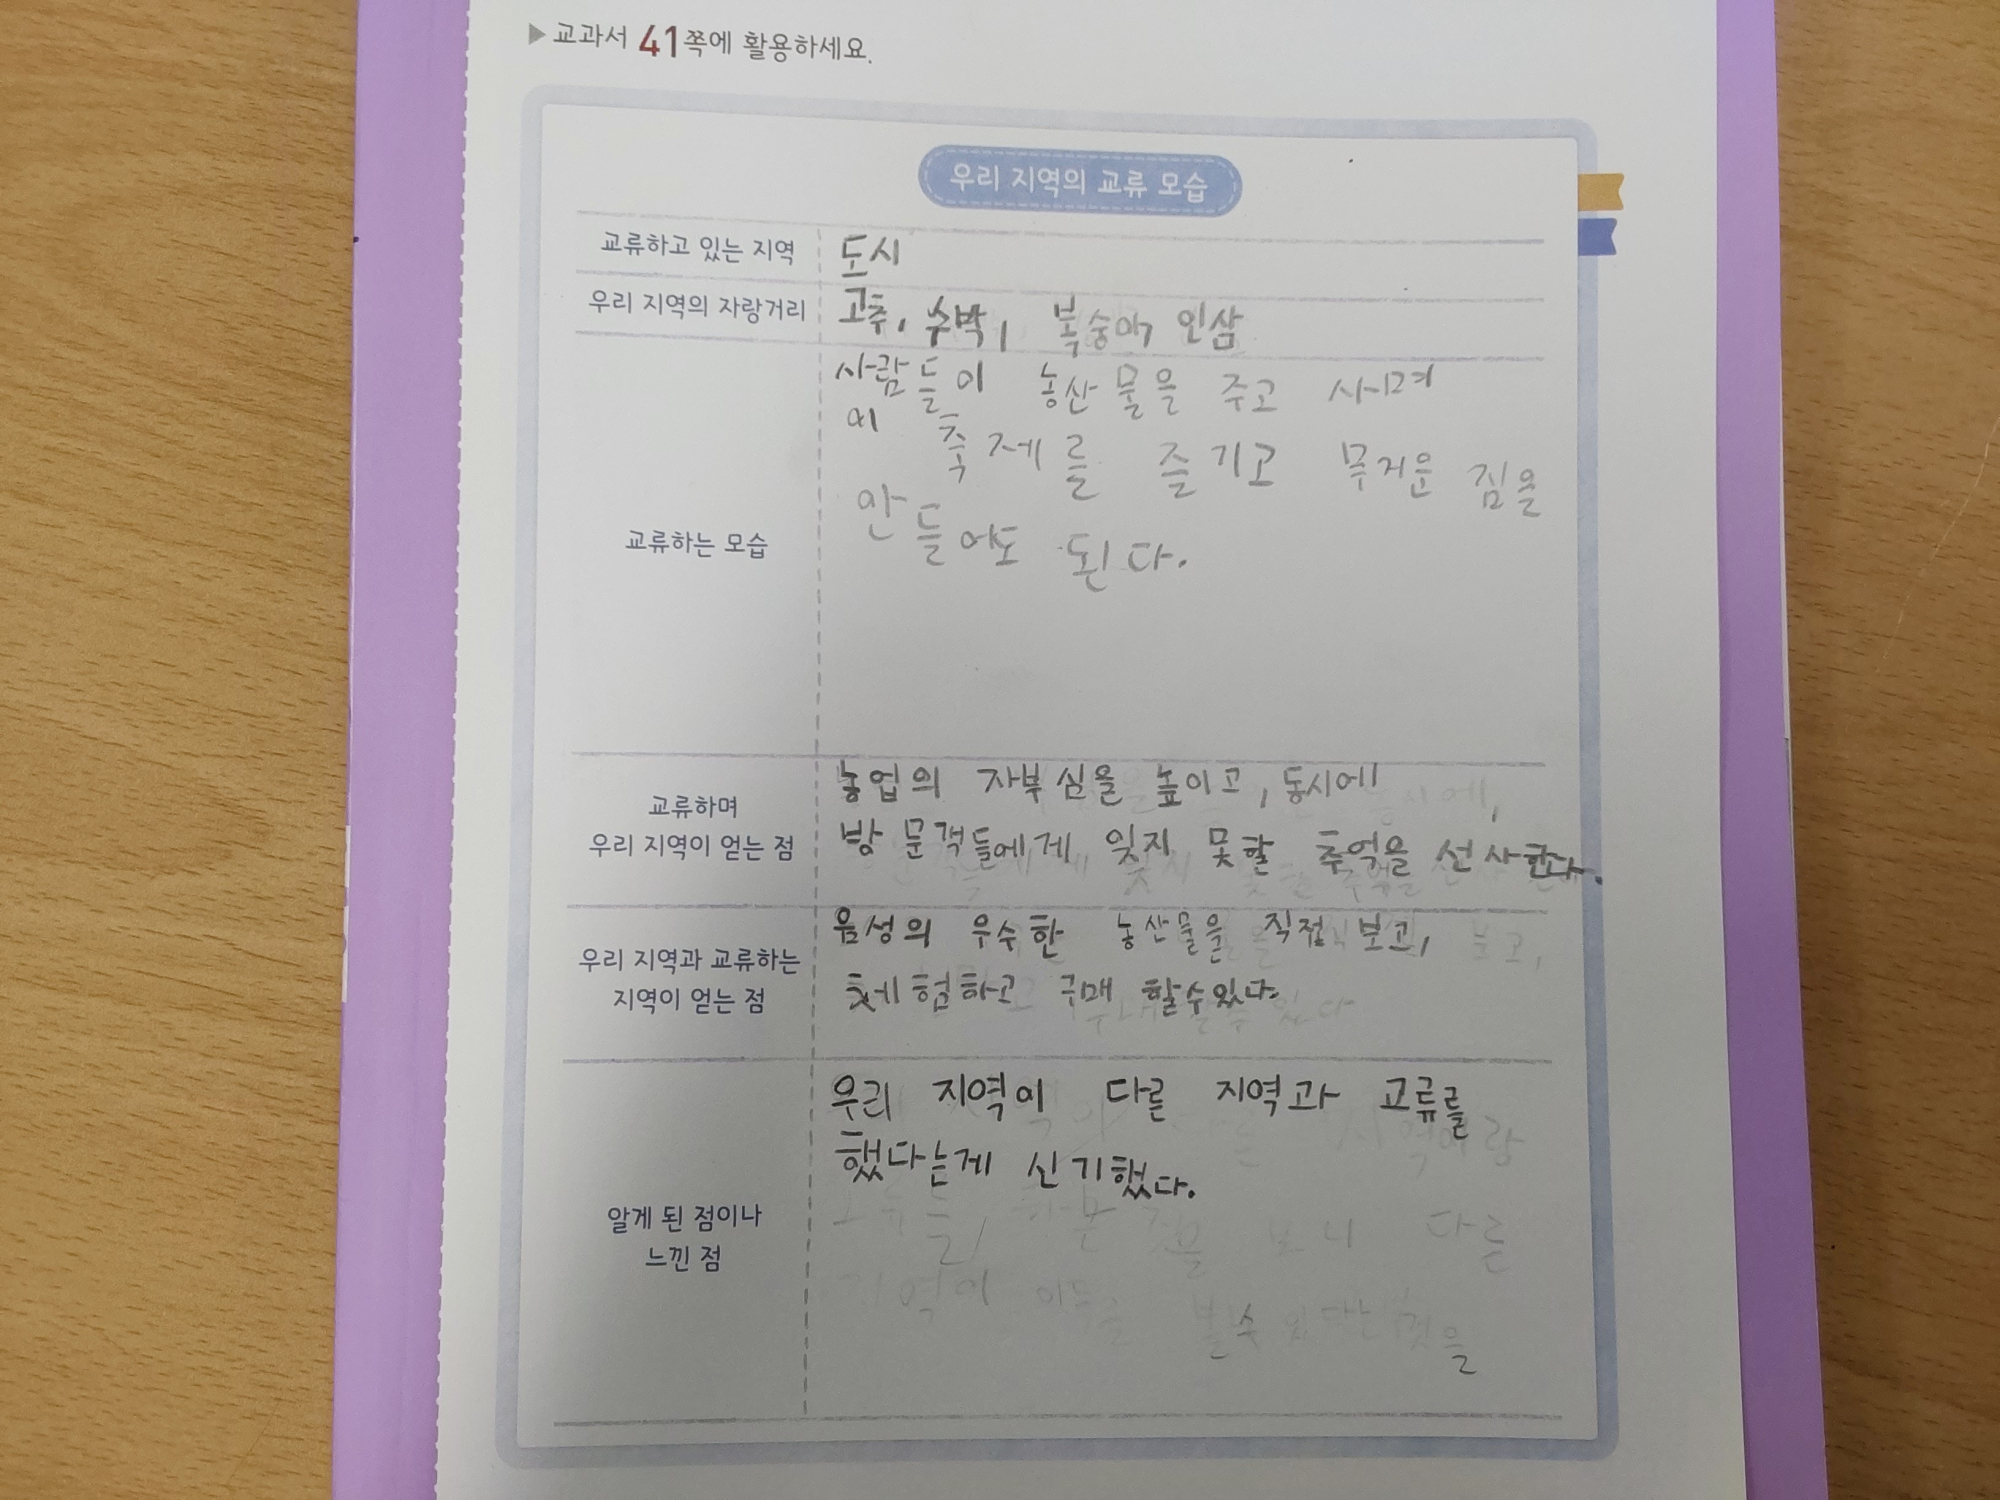 ▶교과서 41쪽에 활용하세요.
우리 지역의 교류 모습
교류하고 있는 지역
도시
우리 지역의 자랑거리
고추, 수박, 복숭아, 인삼
교류하는 모습
사람들이 농산물을 주고
이 축제를 즐기고 무거운 짐을
안 들어도 된다.
교류하며
우리 지역이 얻는 점
농업의 자부심을 높이고, 동시에
방문객들에게 잊지 못할 추억을 선사한다.
우리 지역과 교류하는
지역이 얻는 점
음성의 우수한 농산물을 직접 보고,
체험하고 구매 할수있다.
알게 된 점이나
느낀 점
우리 지역이 다른 지역과 교류를
했다는게 신기했다.